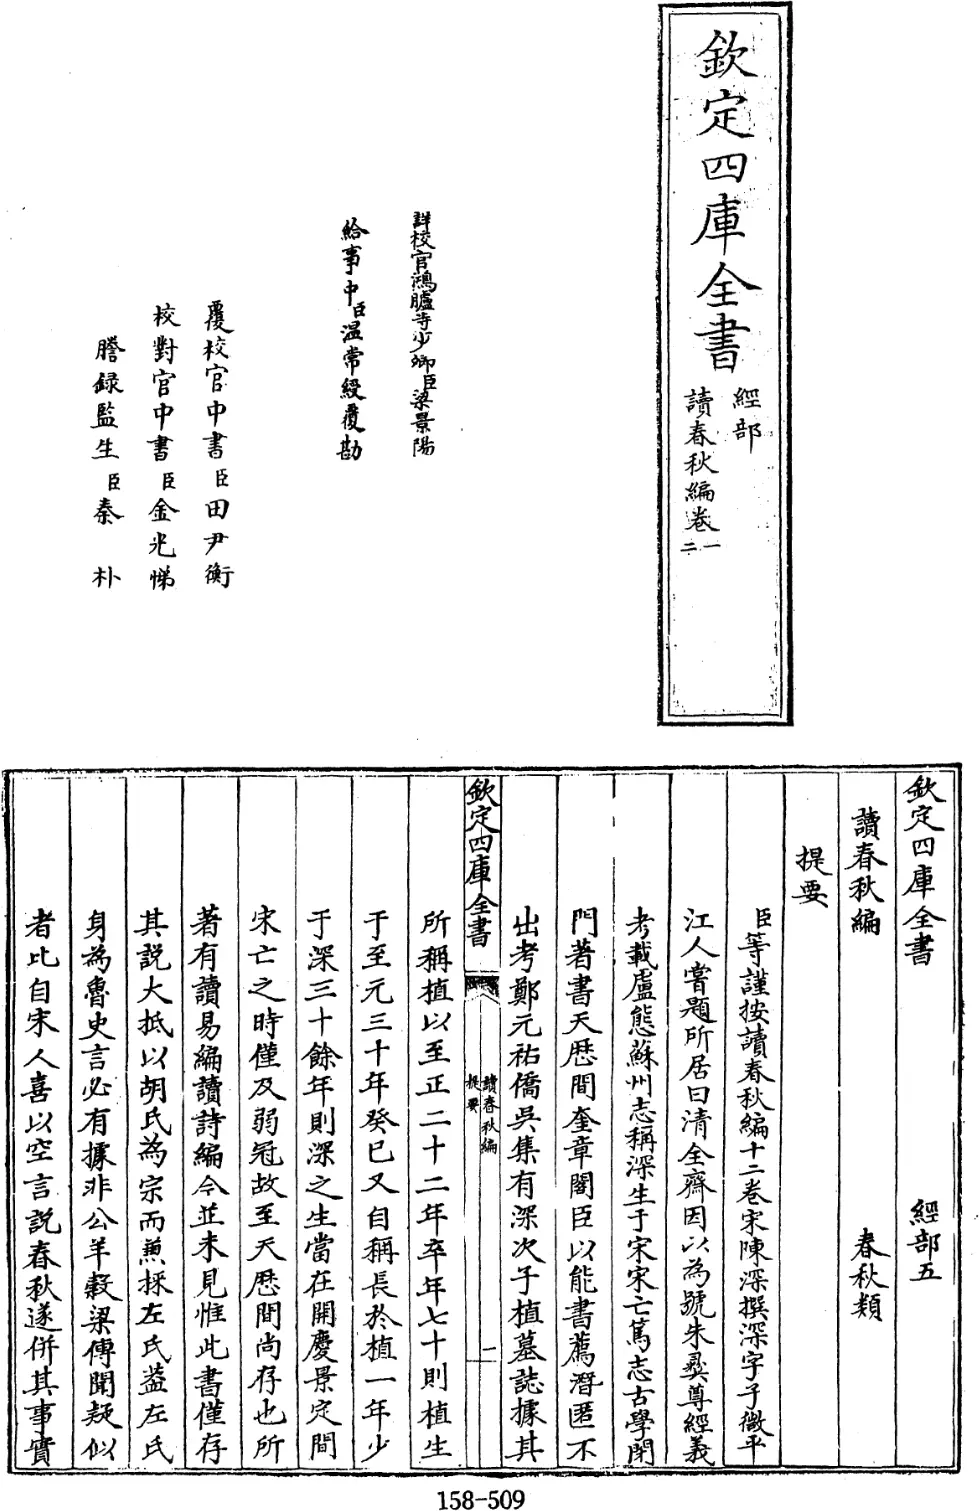 欽定四庫全書
經部
讀春秋編卷一二
詳校官鴻臚寺少卿臣梁景陽
給事中臣溫常綬覆勘
覆校官中書臣田尹衡
校對官中書臣金光悌
謄録監生臣秦朴
欽定四庫全書 經部五
讀春秋編 春秋類
提要
臣等謹按讀春秋編十二卷宋陳深撰深字子微平
江人嘗題所居曰清全齋因以為號朱彝尊經義
考載盧熊蘇州志稱深生于宋宋亡篤志古學閉
門著書天厯間奎章閣臣以能書薦潛匿不
出考鄭元祐僑吳集有深次子植墓誌據其
欽定四庫全書
讀春秋編
提要
一
所稱植以至正二十二年卒年七十則植生
于至元三十年癸巳又自稱長於植一年少
于深三十餘年則深之生當在開慶景定間
宋亡之時僅及弱冠故至天厯間尚存也所
著有讀易編讀詩編今並未見惟此書僅存
其說大抵以胡氏為宗而兼採左氏葢左氏
身為魯史言必有據非公羊穀梁傳聞疑似
者比自宋人喜以空言說春秋遂併其事實
158-509